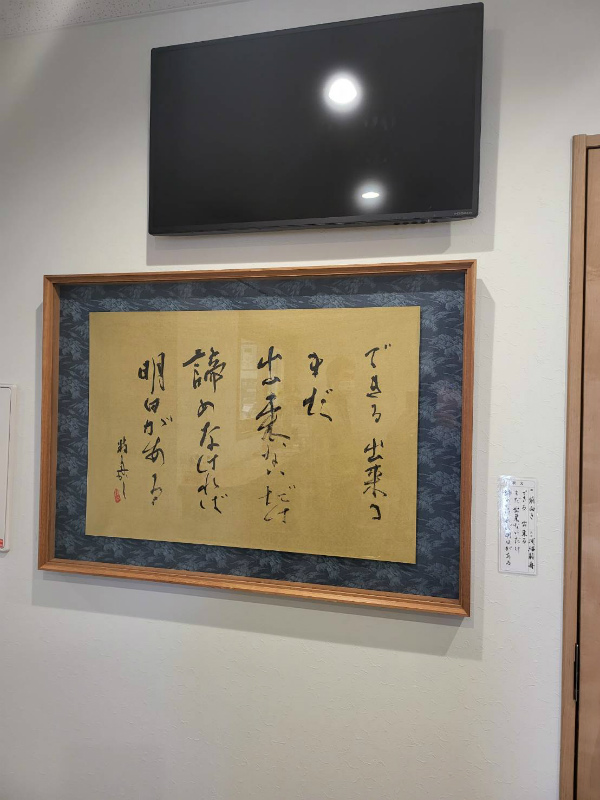 できる 出来る
まだ
出来ないだけ
諦めなければ
明日がある
できる 出来る
まだ 出来ないだけ
諦めなければ明日がある